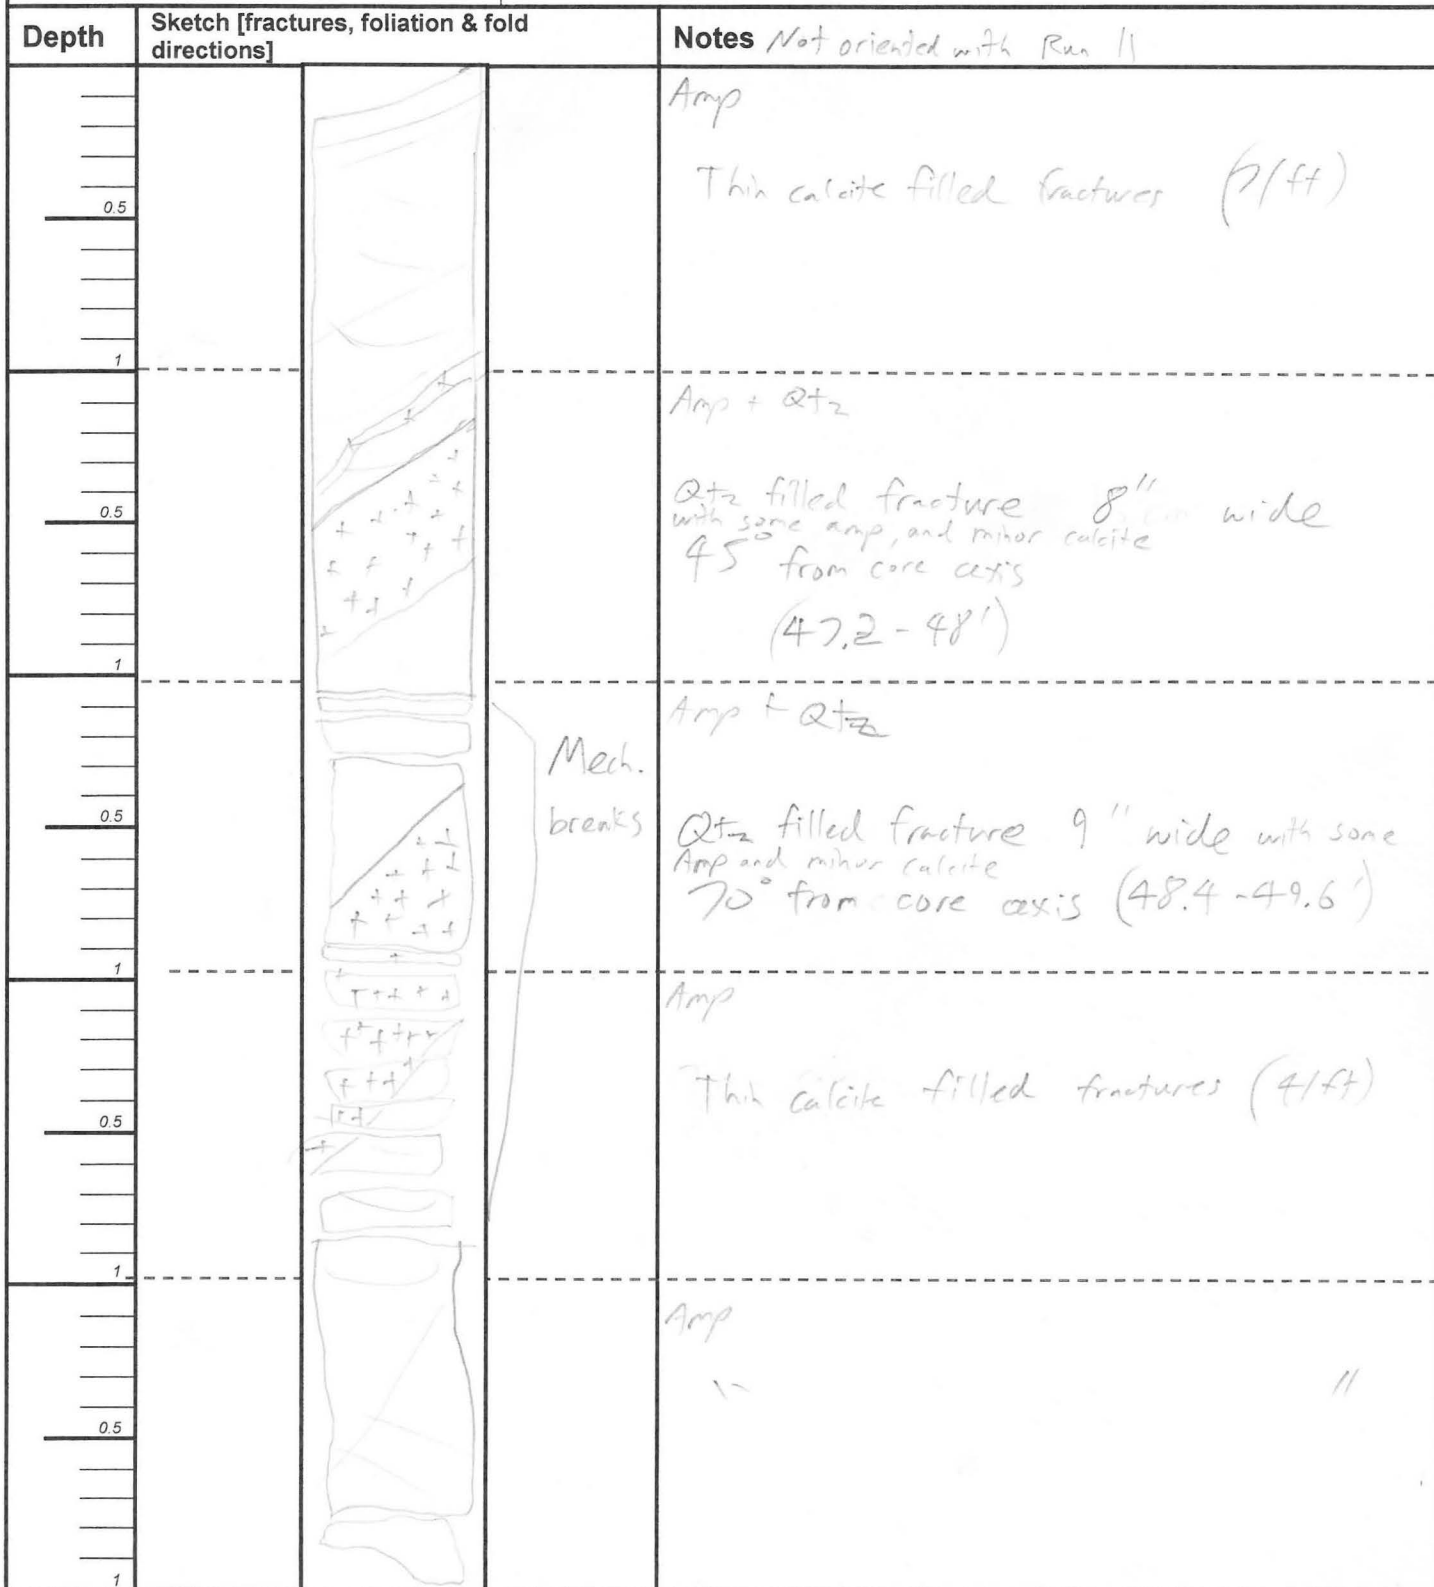 Depth
Sketch [fractures, foliation & fold
directions]
Notes Not oriented with Run 11
Amp
Thin calcite filled fractures (7/ft)
0.5
1
Amp + Qtz
Qtz filled fracture 8" wide
with some amp, and minor calcite
45° from core axis
(47.2 - 48')
0.5
1
Amp + Qtz
Mech.
breaks
0.5
Qtz filled fracture 9" wide with some
Amp and minor calcite
70° from core axis (48.4 - 49.6')
1
Amp
Thin calcite filled fractures (4/ft)
0.5
1
Amp
" "
0.5
1